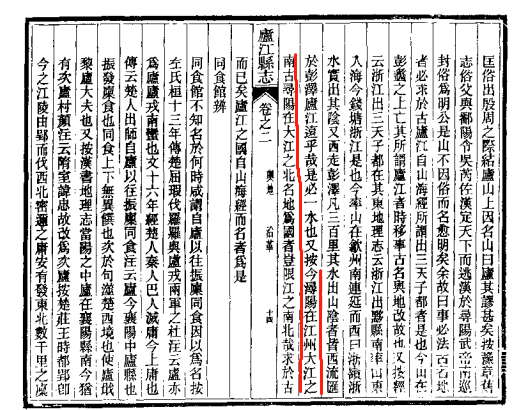 匡俗出殷周之際結廬山上因名山曰廬其謬甚矣按豫章舊
志俗父與鄱陽令吳芮佐漢定天下而逃漢於尋陽武帝南巡
封俗爲明公是山不因俗而名愈明矣余故曰事必法古名地
者必求於古廬江自山海經所謂出三天子都者是也今山在
彭蠡之上亡其所謂廬江者時移事古名與地改故也又按經
云浙江出三天子都在其東地理志云浙江出黟縣南率山東
入海今錢塘浙江是也今率山在歙州南連延而西曰浙嶺浙
水實出其陰又西走彭澤凡三百里其水出山陰者皆西流匯
於彭澤廬江遠乎哉是必一水也又按今潯陽在江州大江之
南古尋陽在大江之北名地爲國者豈限江之南北哉求於古
廬江縣志 卷之二 輿地 沿革 十四
而已矣廬江之國自山海經而名者爲是
同食館辨
同食館不知名於何時咸謂自廬以往振廩同食因以爲名按
左氏桓十三年傳楚屈瑕伐羅羅與盧戎兩軍之杜注云盧亦
爲廬盧戎南蠻也文十六年經楚人秦人巴人滅庸今上庸也
傳云楚人出師自廬以往振廩同食注云廬今襄陽中廬縣也
振發廩食也同食上下無異饌也次於句澨楚西境也使廬戢
黎廬大夫也又按漢書地理志當陽之中廬在襄陽縣南今猶
有次廬村顏注云隋室諱忠故改爲次廬按楚莊王時都郢卽
今之江陵由郢而伐西北密邇之庸安有發東北數千里之廩